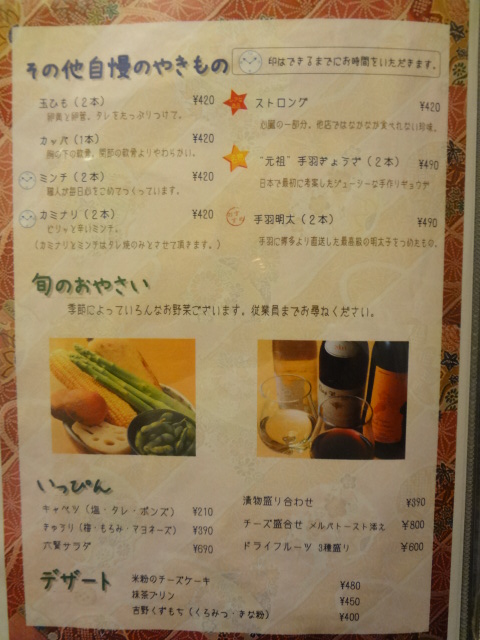 その他自慢のやきもの
印はできるまでにお時間をいただきます。
玉ひも（2本） ¥420
卵黄と卵管、タレをたっぷりつけて。
カッパ（1本） ¥420
胸の下の軟骨。関節の軟骨よりやわらかい。
ミンチ（2本） ¥420
職人が毎日心をこめてつくっています。
カミナリ（2本） ¥420
ピリッと辛いミンチ。
（カミナリとミンチはタレ焼のみとさせて頂きます。）
ストロング ¥420
心臓の一部分。他店ではなかなか食べれない珍味。
“元祖”手羽ぎょうざ（2本） ¥490
日本で最初に考案したジューシーな手作りギョウザ
手羽明太（2本） ¥490
手羽に博多より直送した最高級の明太子をつめたもの。
旬のおやさい
季節によっていろんなお野菜ございます。従業員までお尋ねください。
いっぴん
キャベツ（塩・タレ・ポンズ） ¥210
きゅうり（梅・もろみ・マヨネーズ） ¥390
六賢サラダ ¥690
漬物盛り合わせ ¥390
チーズ盛合せ メルバトースト添え ¥800
ドライフルーツ 3種盛り ¥600
デザート
米粉のチーズケーキ ¥480
抹茶プリン ¥450
吉野くずもち（くろみつ・きな粉） ¥400